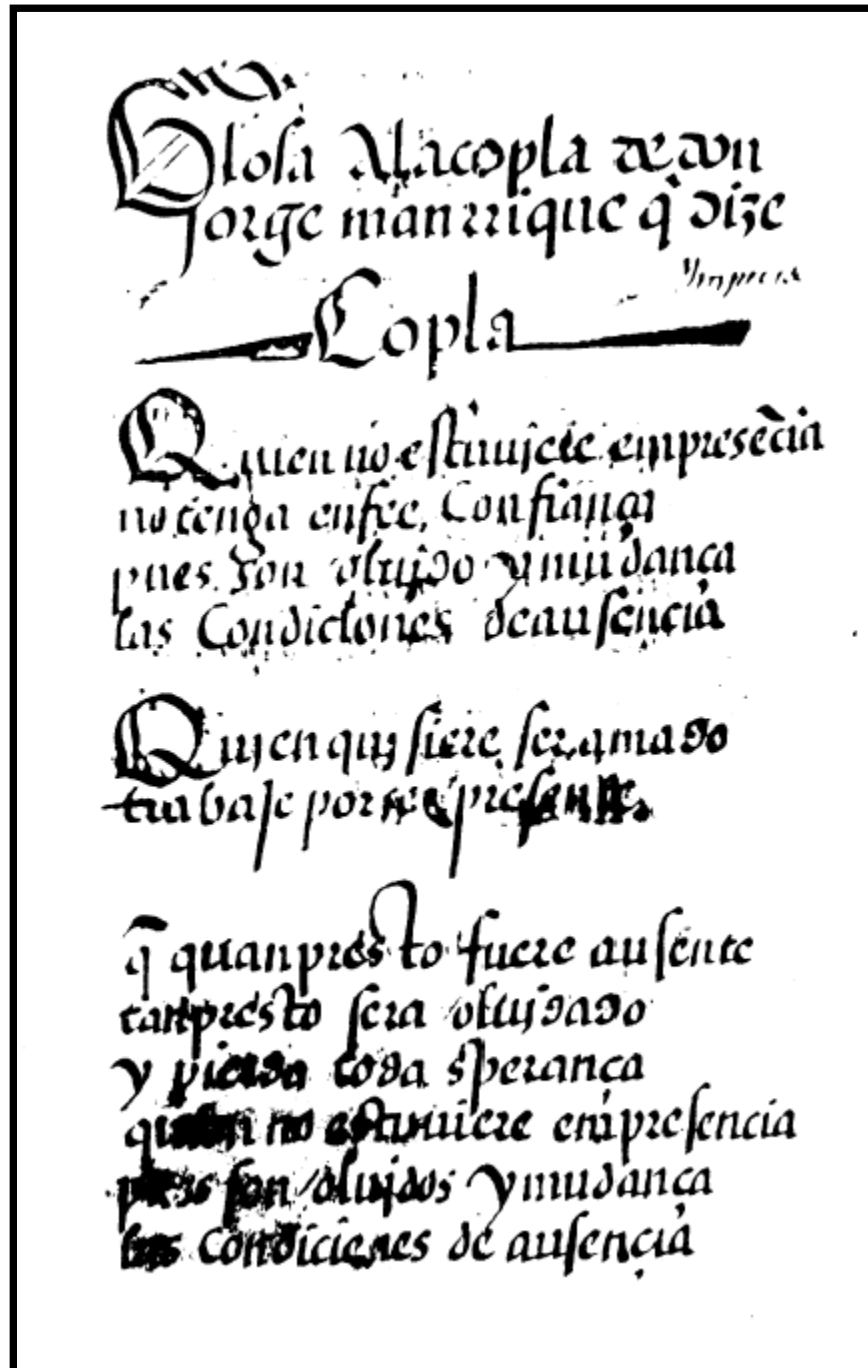 Glosa Alacopla de don
Jorge manrrique q̃ dize
Copla
Quien no estuuiere empresẽcia
no tenga enfee, Confiança
pues son oluido y mudança
las Condiciones de ausencia
Quien quisiere ser amado
trabaje por ser presente
q̃ quan presto fuere ausente
tan presto sera oluidado
y pierda toda sperança
quien no estuuiere en presencia
pues son oluidos y mudança
las condiciones de ausençia